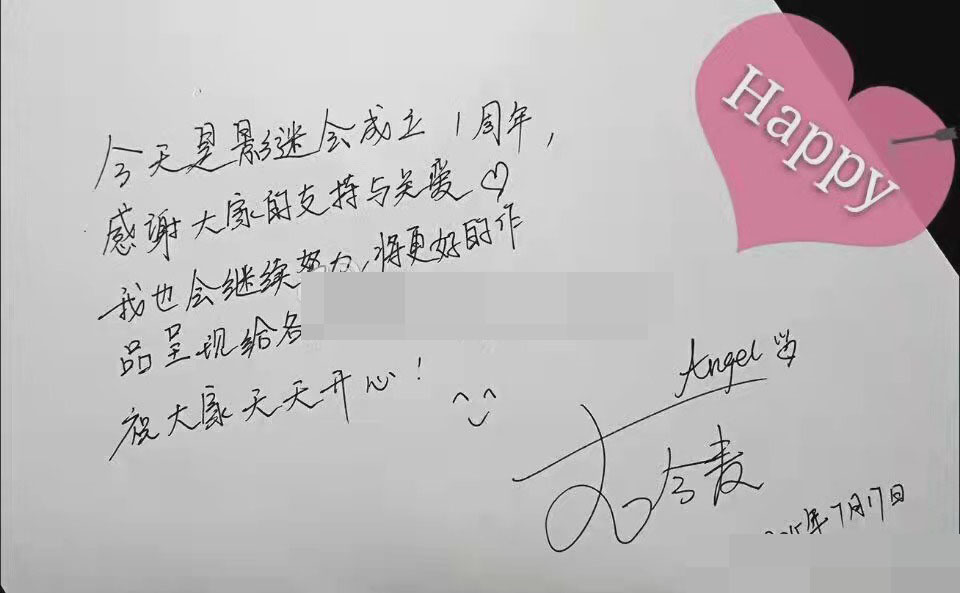 Happy
今天是影迷会成立1周年,
感谢大家的支持与关爱♡
我也会继续努力,将更好的作
品呈现给各
祝大家天天开心!
Angel
令麦
年7月17日